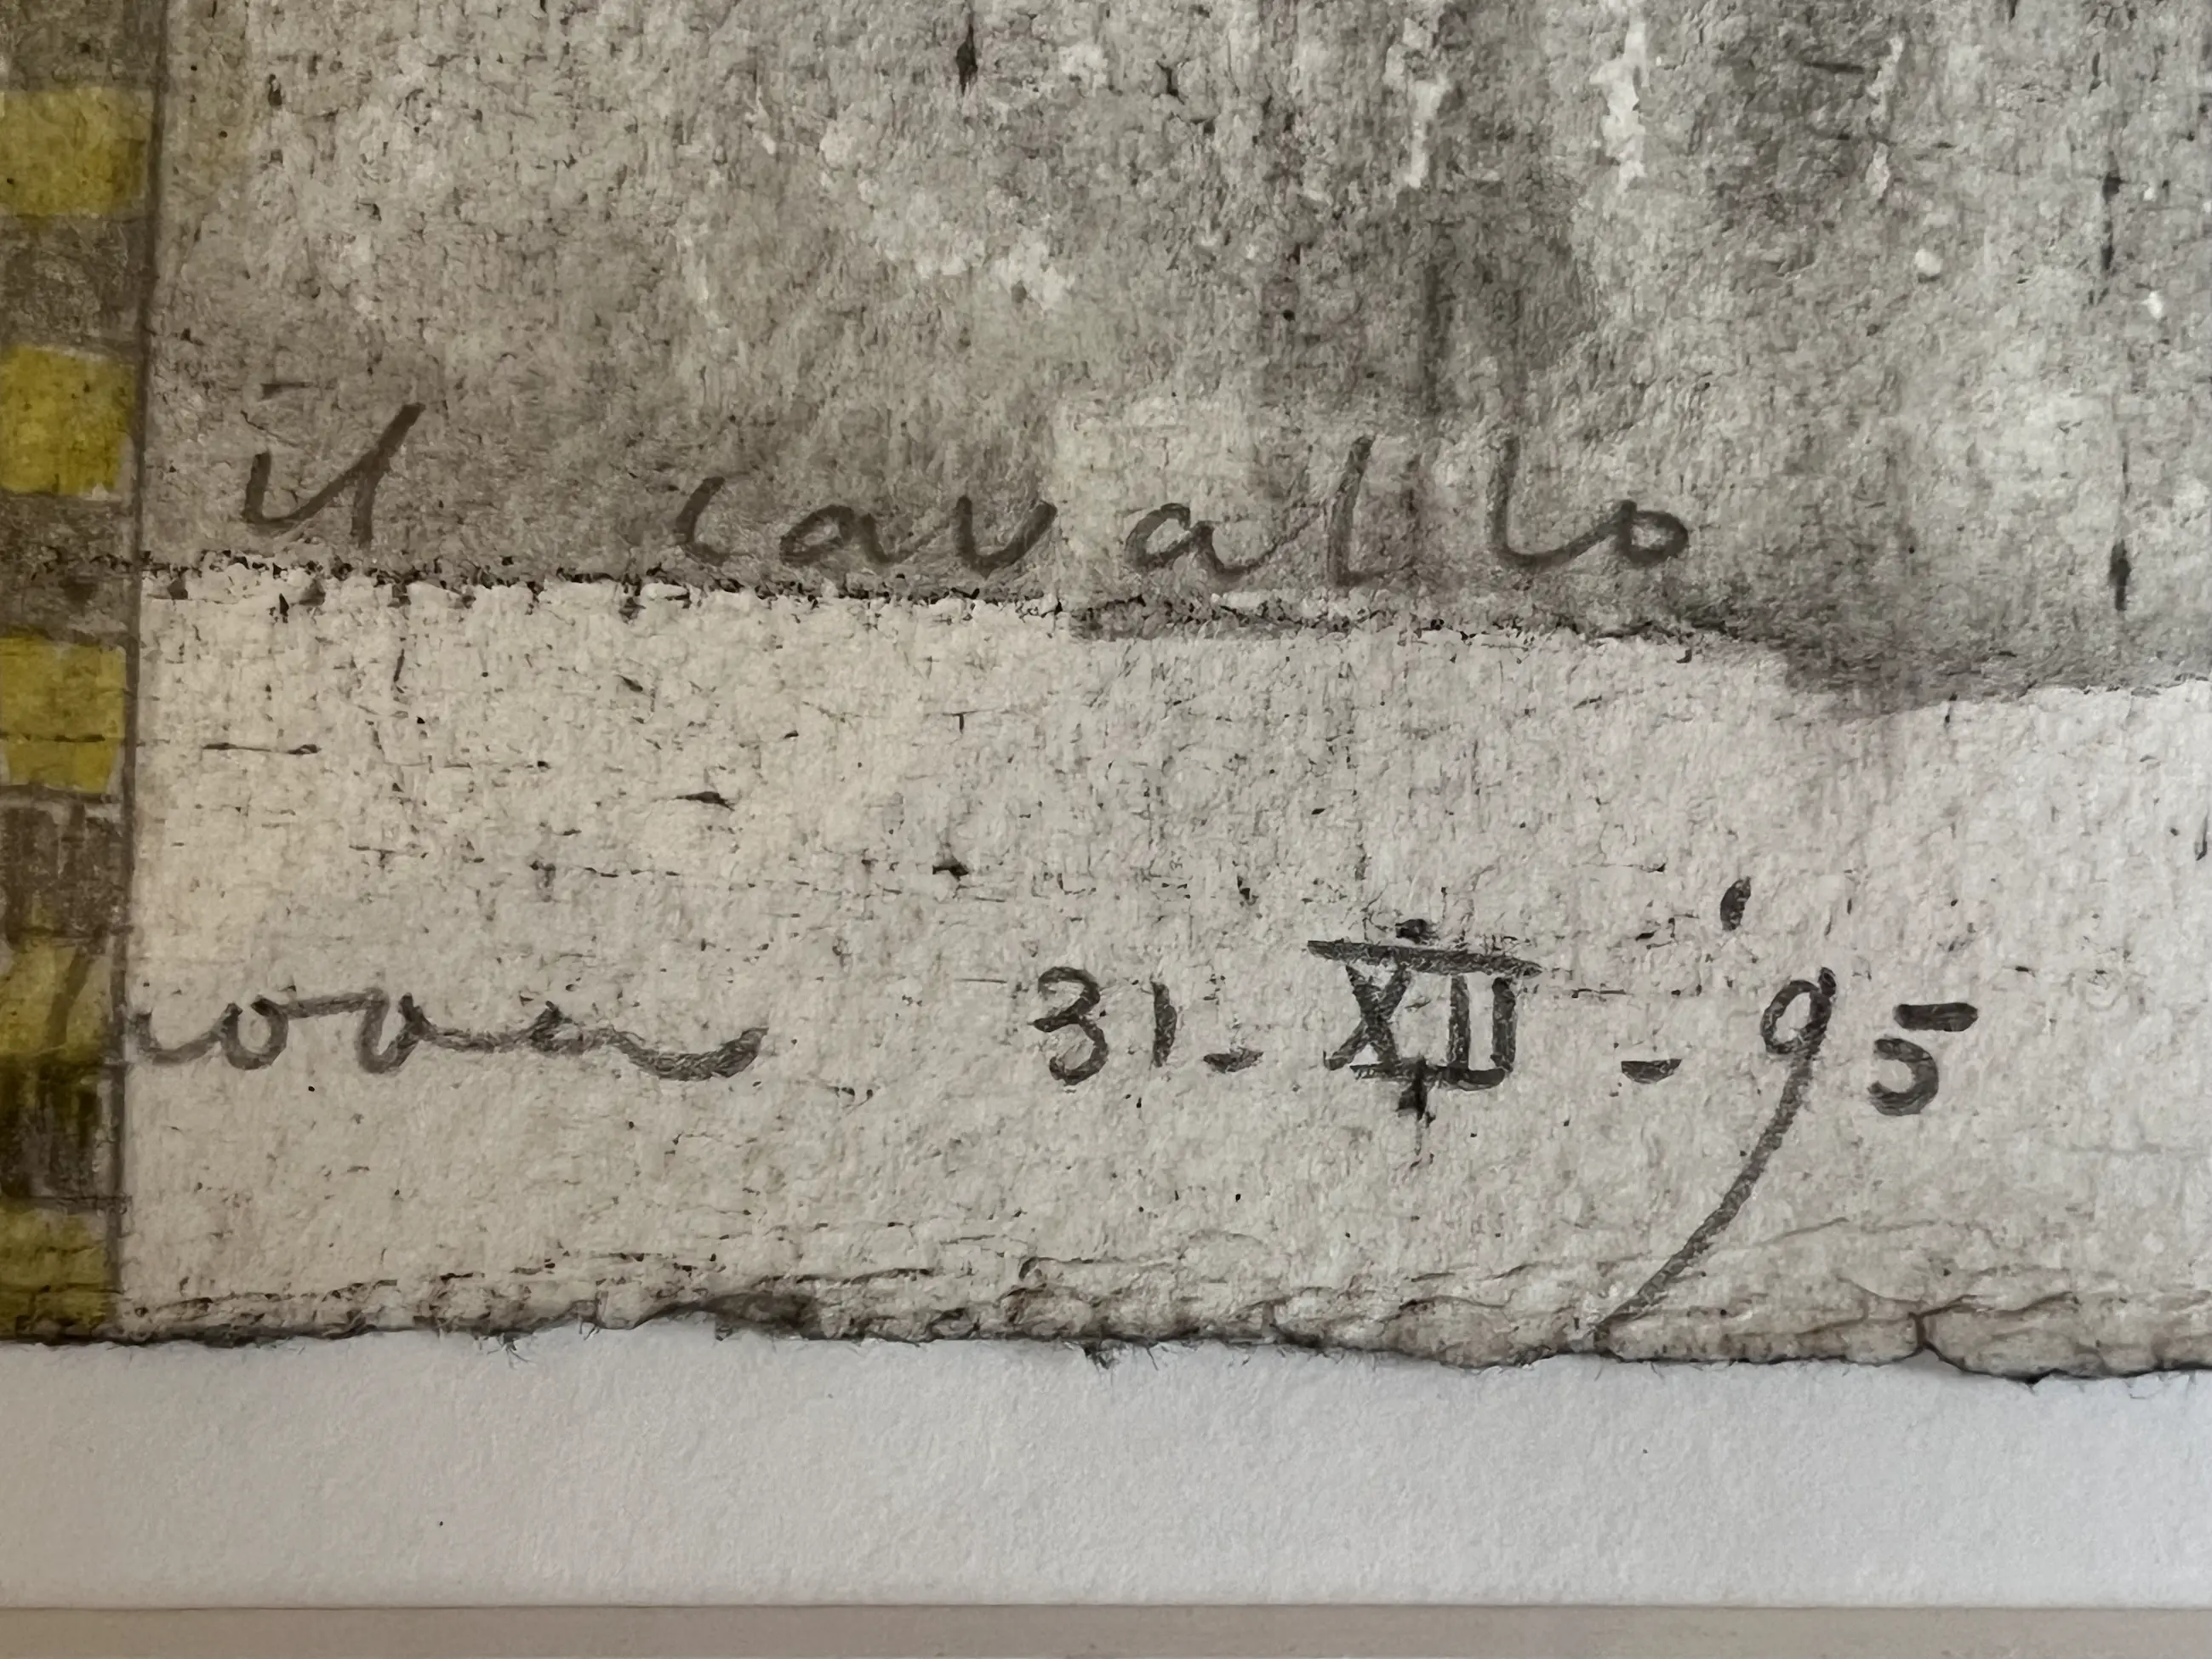 il cavallo
31-XII-'95